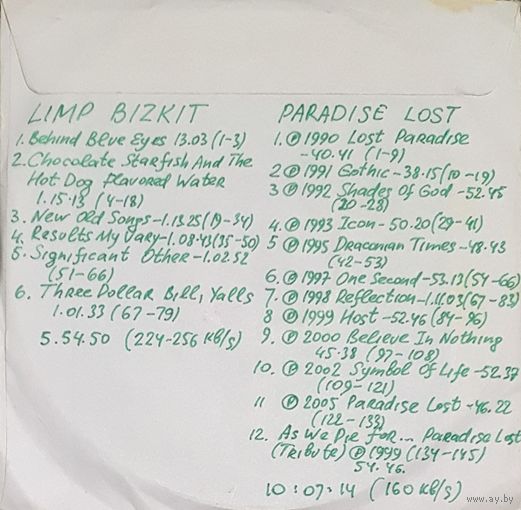 LIMP BIZKIT
1. Behind Blue Eyes 13.03 (1-3)
2. Chocolate Starfish And The
Hot Dog Flavored Water
1.15.13 (4-18)
3. New Old Songs-1.13.25 (19-34)
4. Results My Vary-1.08.43 (35-50)
5. Significant Other-1.02.52
(51-66)
6. Three Dollar Bill, Yalls
1.01.33 (67-79)
5.54.50 (224-256 кв/s)
PARADISE LOST
1. ℗ 1990 Lost Paradise
-40.41 (1-9)
2 ℗ 1991 Gothic-38.15 (10-19)
3 ℗ 1992 Shades Of God-52.45
(20-28)
4. ℗ 1993 Icon-50.20 (29-41)
5 ℗ 1995 Draconian Times-48.43
(42-53)
6. ℗ 1997 One Second-53.13 (54-66)
7. ℗ 1998 Reflection-1.11.03 (67-83)
8 ℗ 1999 Host-52.46 (84-96)
9. ℗ 2000 Believe In Nothing
45.38 (97-108)
10. ℗ 2002 Symbol Of Life-52.37
(109-121)
11 ℗ 2005 Paradise Lost-46.22
(122-133)
12. As We Die For... Paradise Lost
(Tribute) ℗ 1999 (134-145)
54.46.
10:07:14 (160 кв/s)
www.ay.by